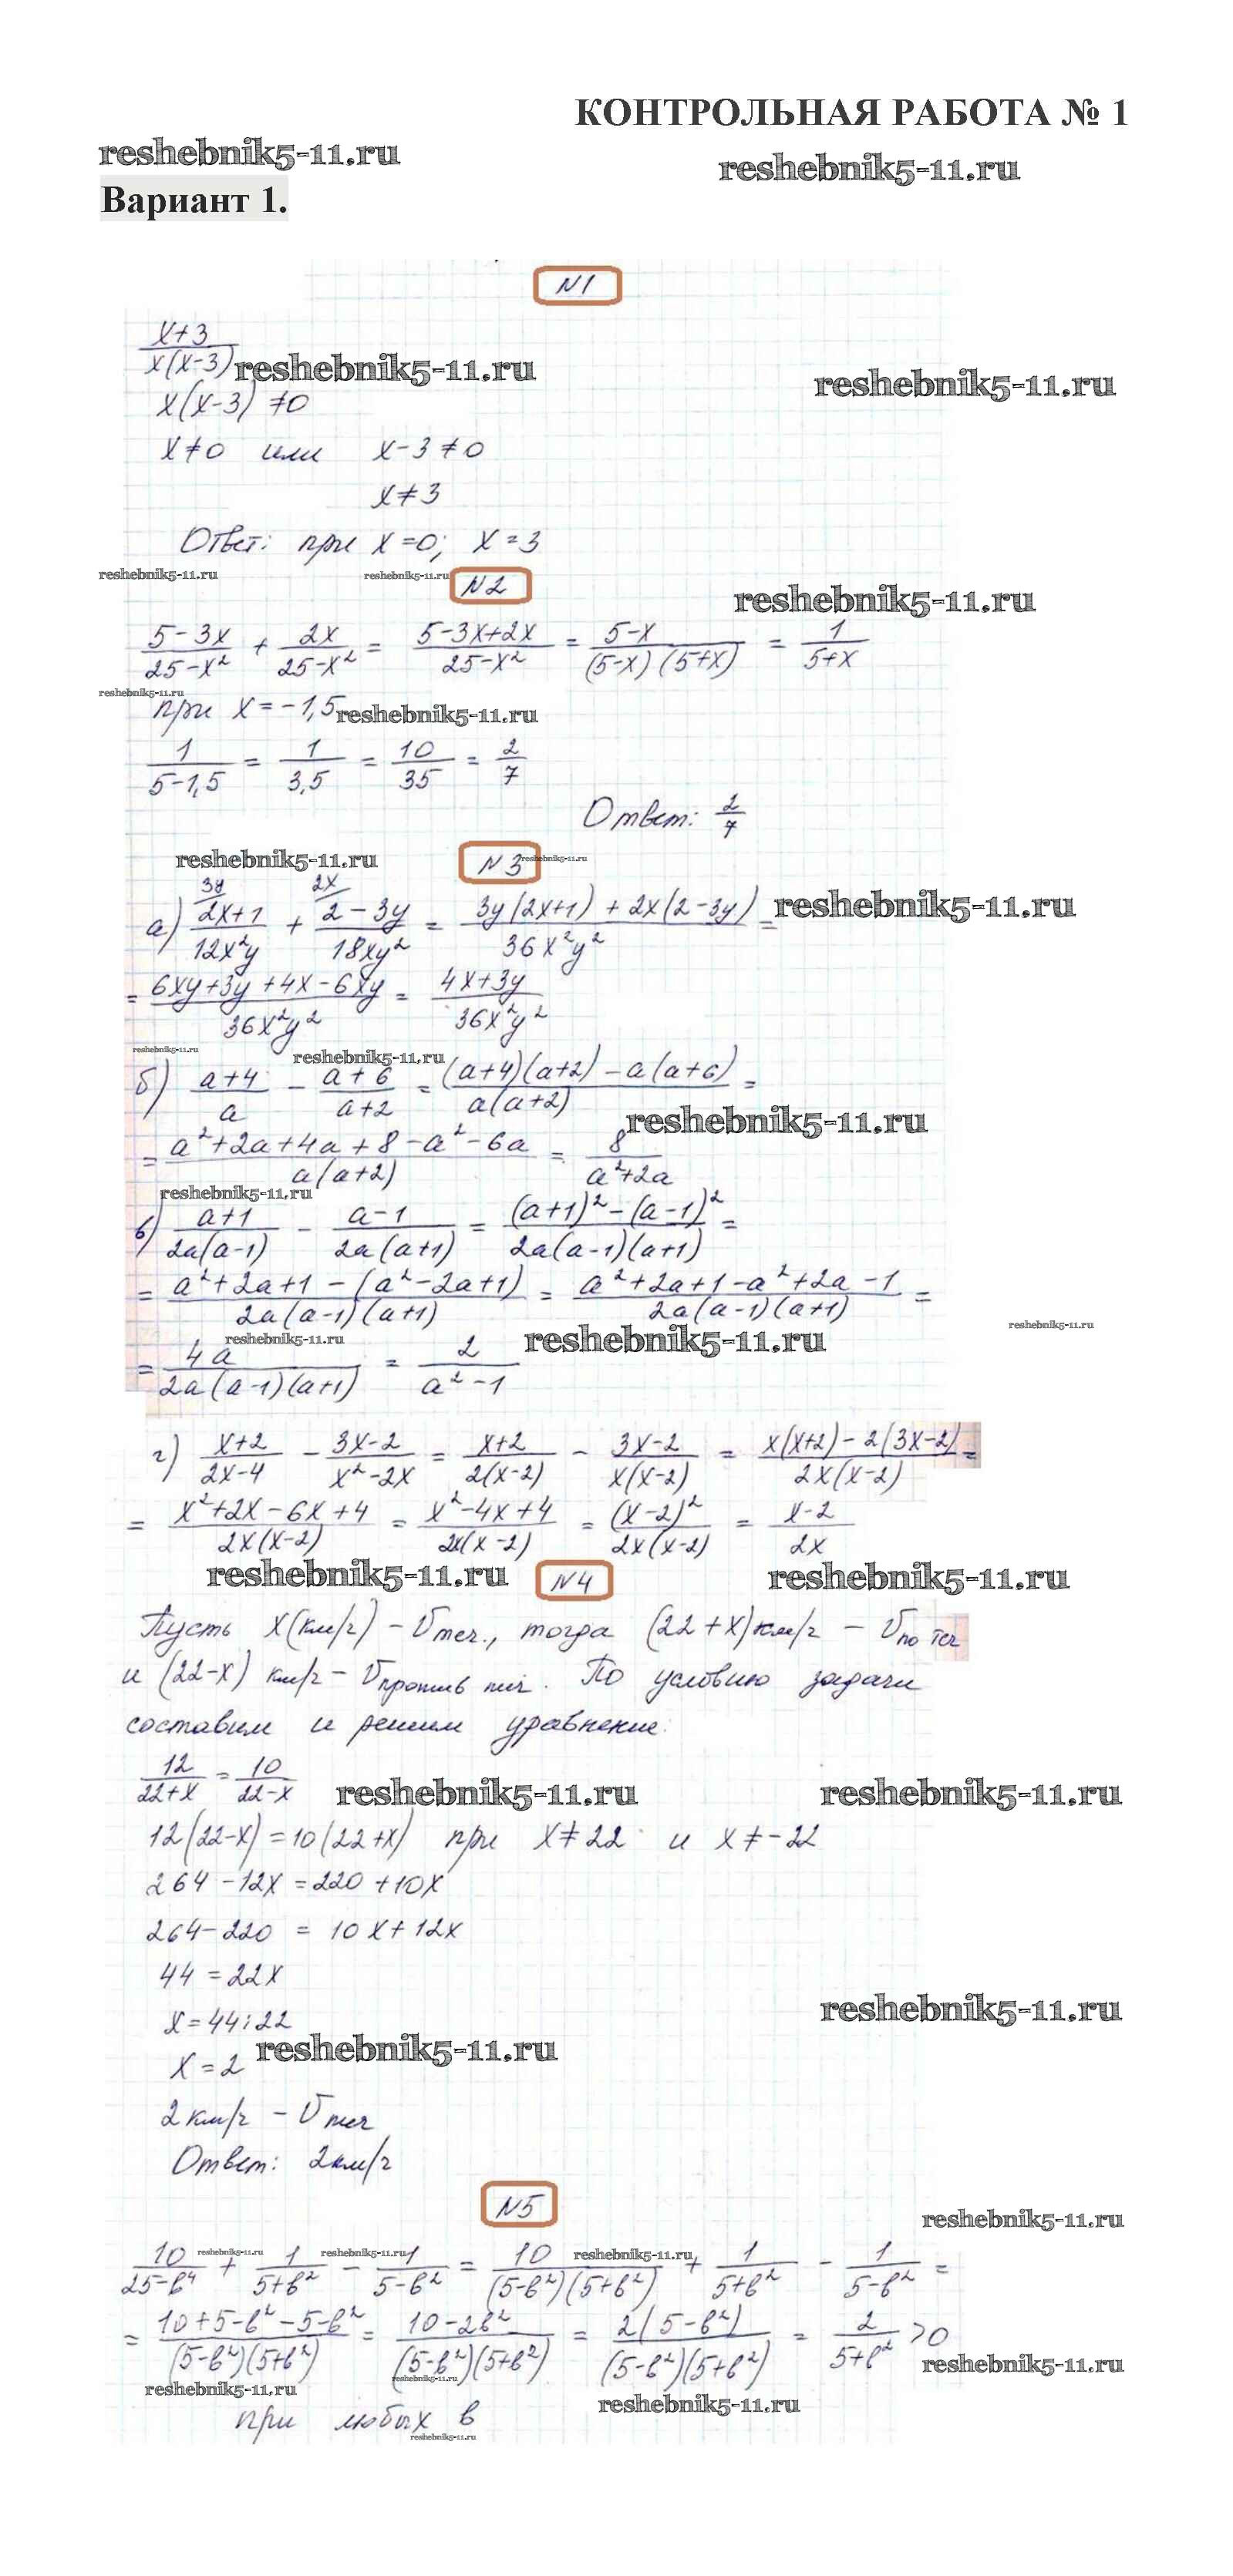 КОНТРОЛЬНАЯ РАБОТА № 1
reshebnik5-11.ru reshebnik5-11.ru
Вариант 1.
N1
(x+3)/(x(x-3)) reshebnik5-11.ru reshebnik5-11.ru
x(x-3) ≠0
x≠0 или x-3≠0
x≠3
Ответ: при x=0; x=3
reshebnik5-11.ru reshebnik5-11.ru N2 reshebnik5-11.ru
(5-3x)/(25-x²) + 2x/(25-x²) = (5-3x+2x)/(25-x²) = (5-x)/((5-x)(5+x)) = 1/(5+x)
reshebnik5-11.ru
при x=-1,5 reshebnik5-11.ru
1/(5-1,5) = 1/3,5 = 10/35 = 2/7
Ответ: 2/7
reshebnik5-11.ru N3 reshebnik5-11.ru
3y 2x
а) (2x+1)/(12x²y) + (2-3y)/(18xy²) = (3y(2x+1) + 2x(2-3y))/(36x²y²) = reshebnik5-11.ru
= (6xy+3y+4x-6xy)/(36x²y²) = (4x+3y)/(36x²y²)
reshebnik5-11.ru reshebnik5-11.ru
б) (a+4)/a - (a+6)/(a+2) = ((a+4)(a+2)-a(a+6))/(a(a+2)) =
reshebnik5-11.ru
= (a²+2a+4a+8-a²-6a)/(a(a+2)) = 8/(a²+2a)
reshebnik5-11.ru
в) (a+1)/(2a(a-1)) - (a-1)/(2a(a+1)) = ((a+1)²-(a-1)²)/(2a(a-1)(a+1)) =
= (a²+2a+1-(a²-2a+1))/(2a(a-1)(a+1)) = (a²+2a+1-a²+2a-1)/(2a(a-1)(a+1)) =
reshebnik5-11.ru reshebnik5-11.ru reshebnik5-11.ru
= 4a/(2a(a-1)(a+1)) = 2/(a²-1)
г) (x+2)/(2x-4) - (3x-2)/(x²-2x) = (x+2)/(2(x-2)) - (3x-2)/(x(x-2)) = (x(x+2)-2(3x-2))/(2x(x-2)) =
= (x²+2x-6x+4)/(2x(x-2)) = (x²-4x+4)/(2x(x-2)) = (x-2)²/(2x(x-2)) = (x-2)/(2x)
reshebnik5-11.ru N4 reshebnik5-11.ru
Пусть x(км/ч) - Vтеч., тогда (22+x)км/ч - Vпо теч
и (22-x) км/ч - Vпротив теч. По условию задачи
составим и решим уравнение:
12/(22+x) = 10/(22-x) reshebnik5-11.ru reshebnik5-11.ru
12(22-x)=10(22+x) при x≠22 и x≠-22
264-12x=220+10x
264-220 = 10x+12x
44=22x
x=44:22 reshebnik5-11.ru
x=2 reshebnik5-11.ru
2км/ч - Vтеч
Ответ: 2км/ч
N5 reshebnik5-11.ru
reshebnik5-11.ru reshebnik5-11.ru reshebnik5-11.ru
10/(25-b⁴) + 1/(5+b²) - 1/(5-b²) = 10/((5-b²)(5+b²)) + 1/(5+b²) - 1/(5-b²) =
= (10+5-b²-5-b²)/((5-b²)(5+b²)) = (10-2b²)/((5-b²)(5+b²)) = 2(5-b²)/((5-b²)(5+b²)) = 2/(5+b²) >0
reshebnik5-11.ru reshebnik5-11.ru reshebnik5-11.ru reshebnik5-11.ru
при любых b
reshebnik5-11.ru